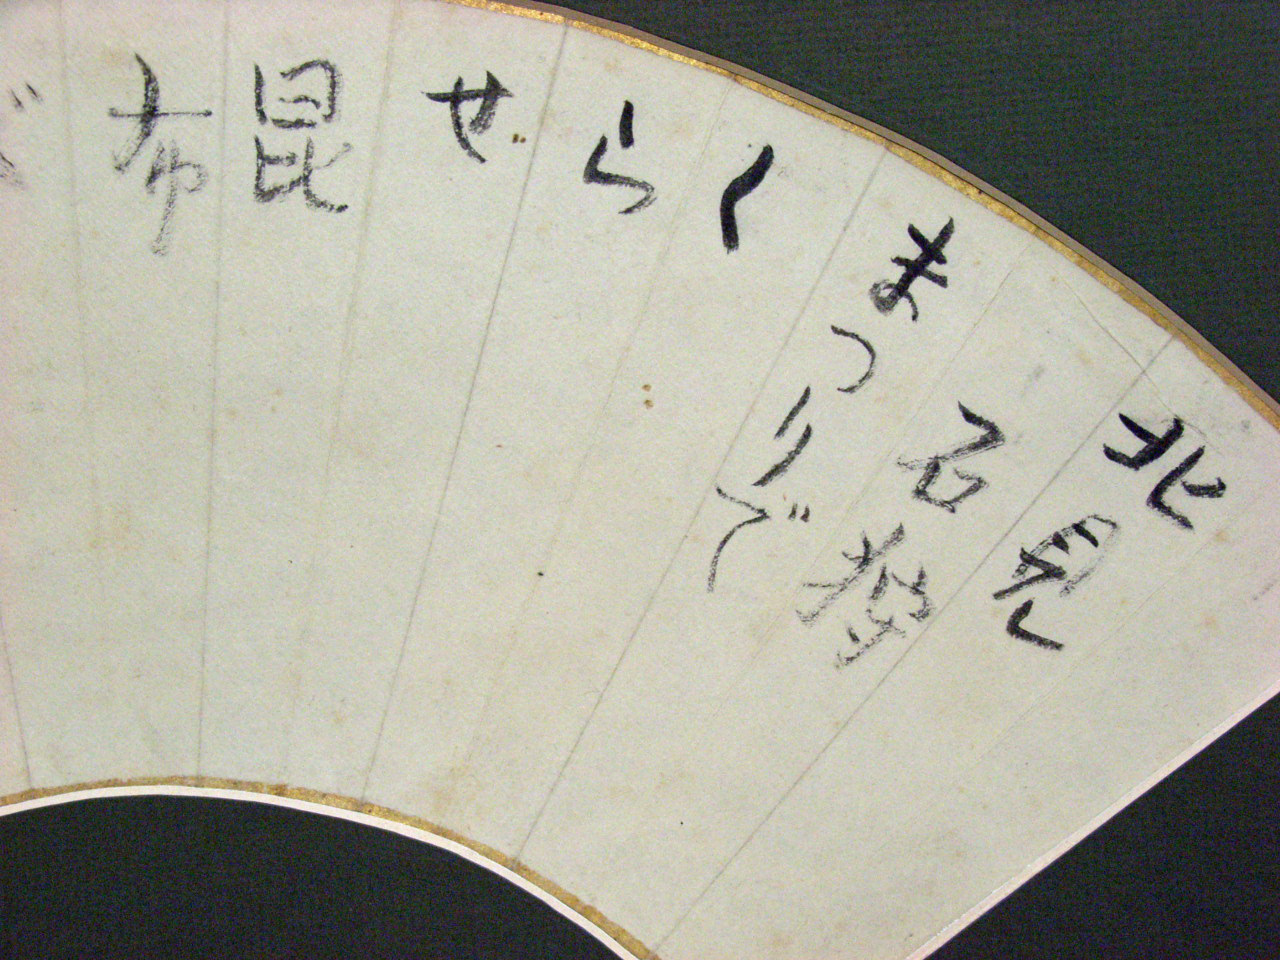 北見
石狩
まつりで
く
ら
せ
昆
布